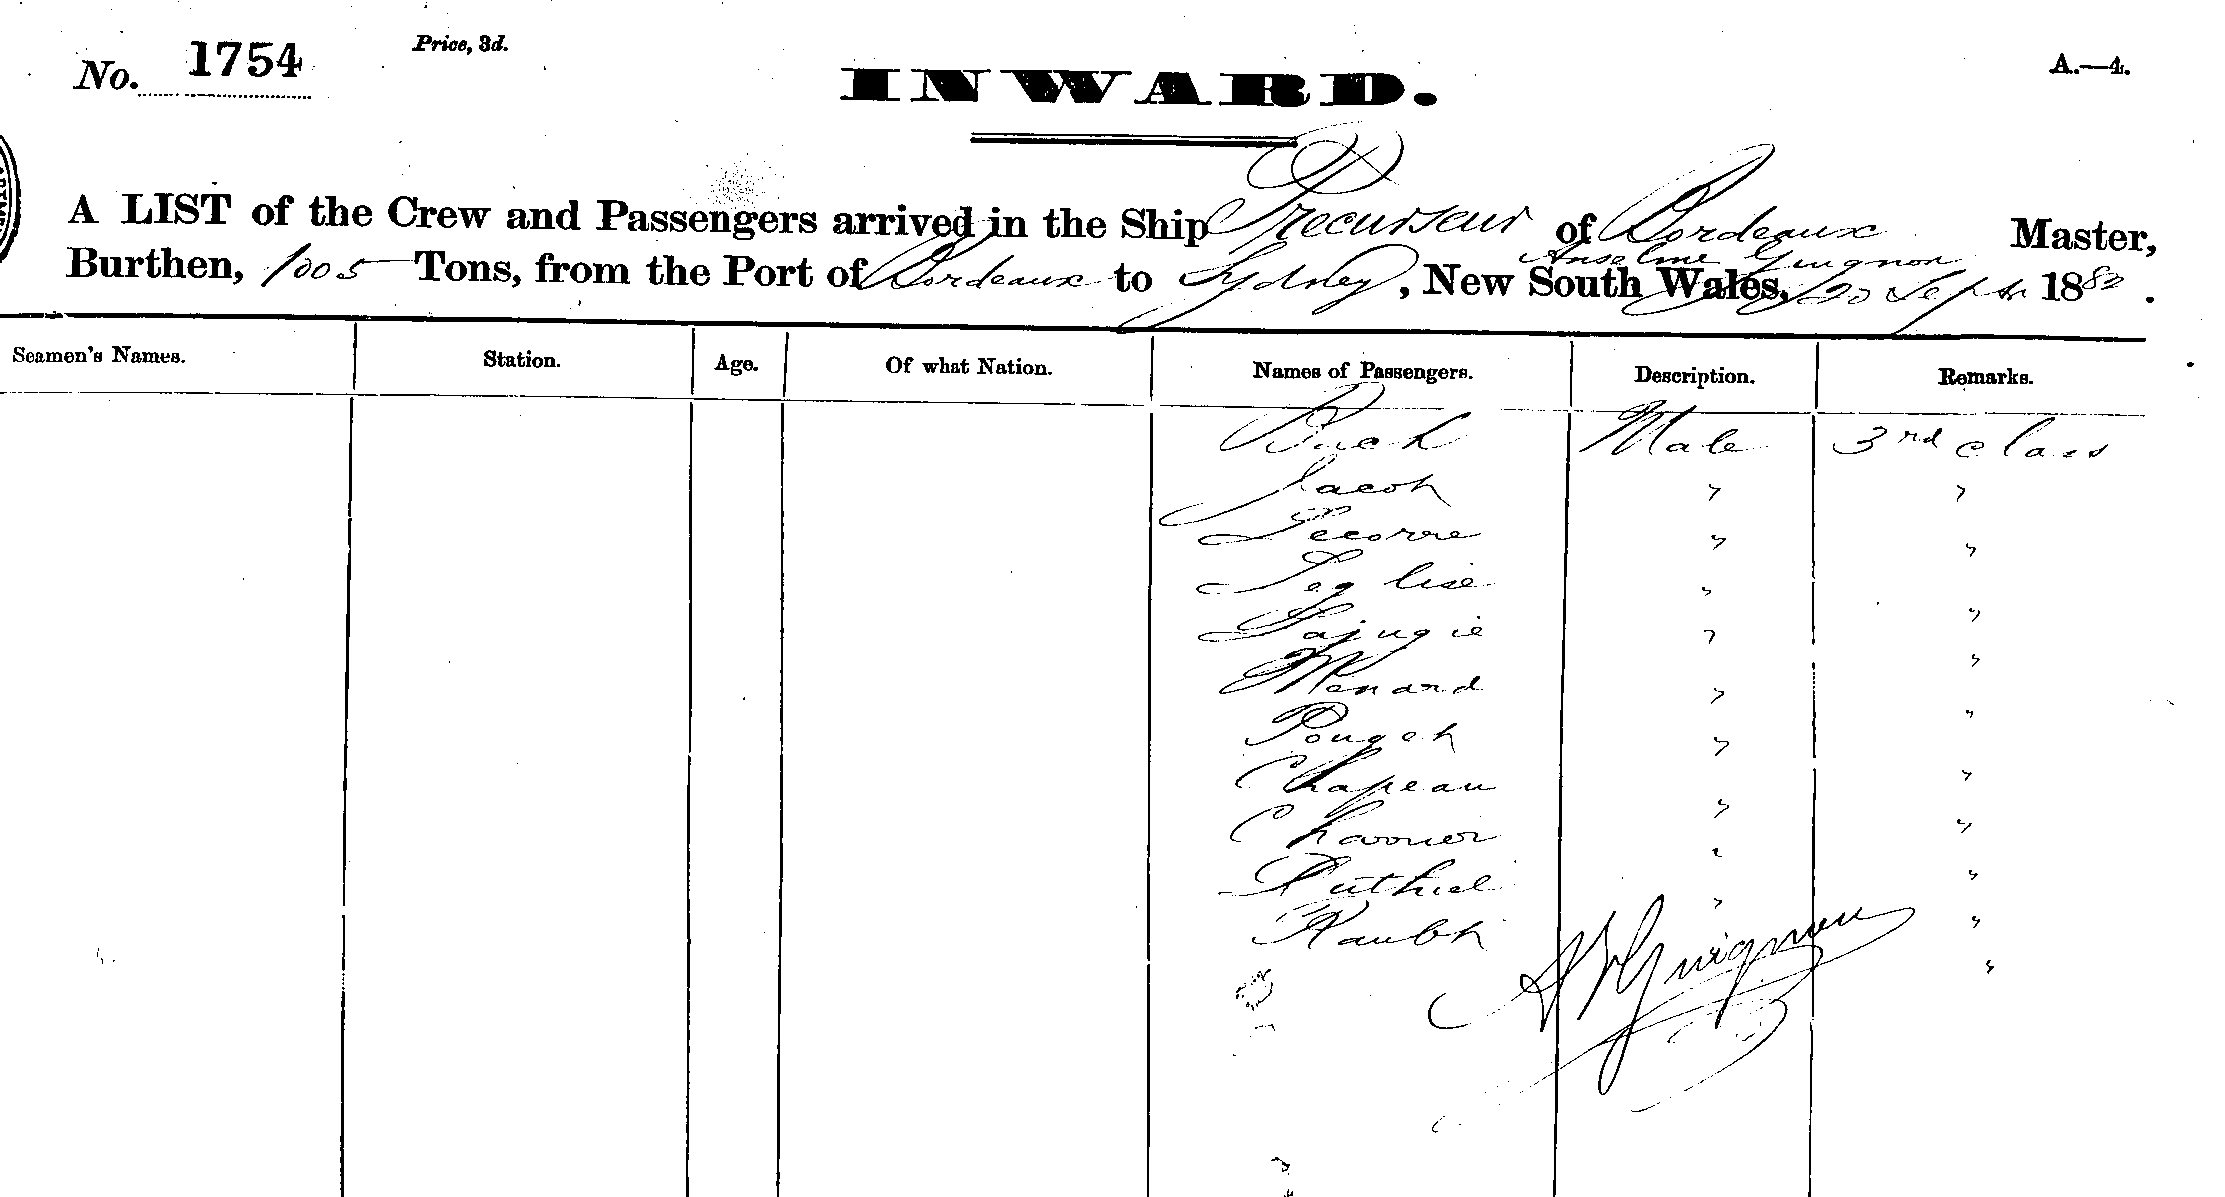 No. 1754 Price, 3d. A.—4.
INWARD.
A LIST of the Crew and Passengers arrived in the Ship Precurseur of Bordeaux Master,
Anselme Guignon
Burthen, 1005 Tons, from the Port of Bordeaux to Sydney, New South Wales, 20 Septr 1882.
Seamen's Names. Station. Age. Of what Nation. Names of Passengers. Description. Remarks.
Buch Male 3rd class
Jacob " "
Lecorre " "
Leglise " "
Lajugie " "
Menard " "
Pouget " "
Chapeau " "
" "
Duthiel " "
"
Guignon